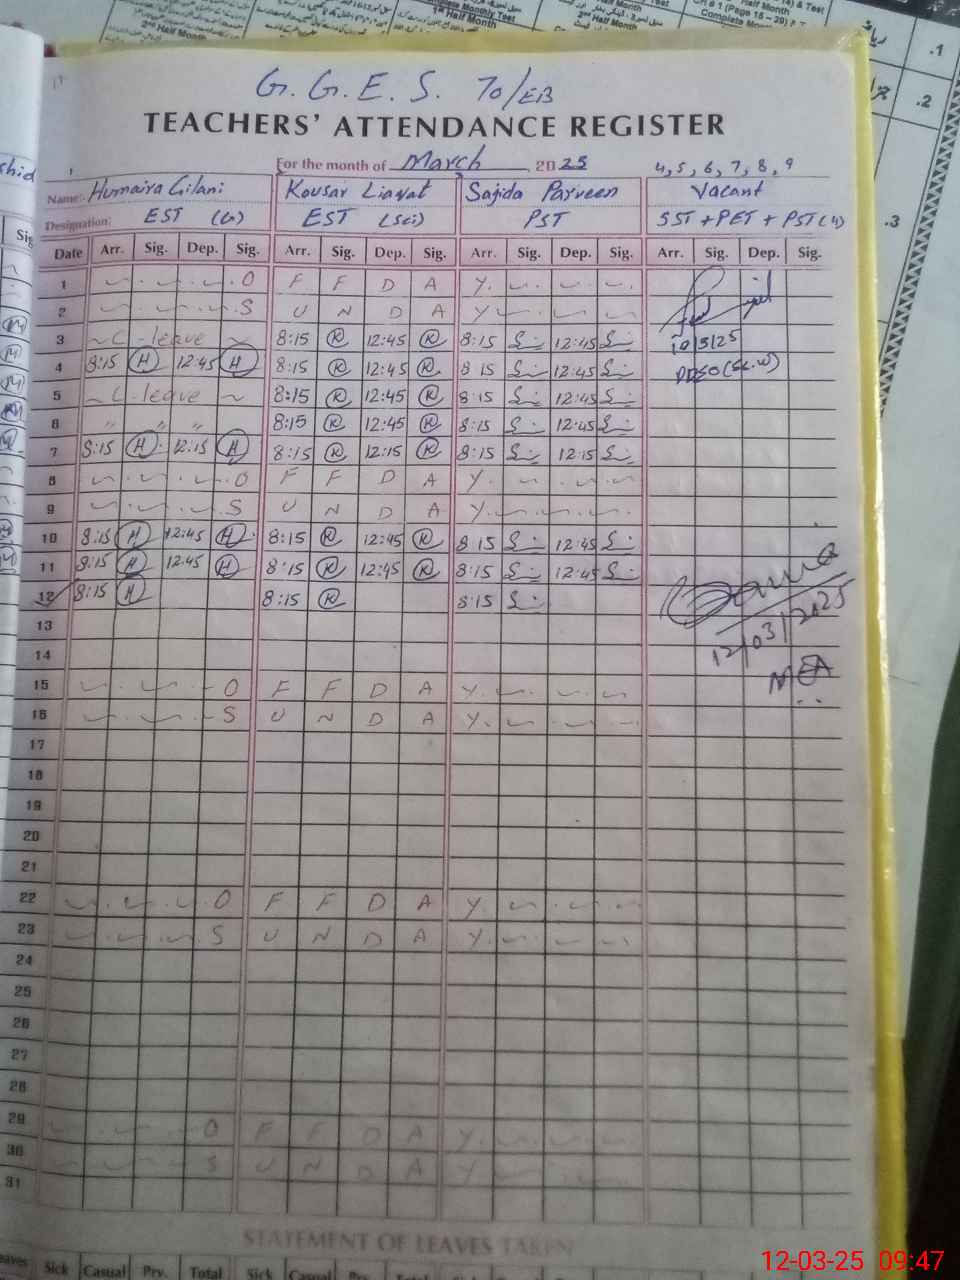 G. G. E. S. 70/EB
TEACHERS' ATTENDANCE REGISTER
For the month of March, 2025
4, 5, 6, 7, 8, 9
Name: Humaira Gilani Kousar Liaqat Sajida Parveen Vacant
Designation: EST (G) EST (Sci) PST SST + PET + PST (4)
Date Arr. Sig. Dep. Sig. Arr. Sig. Dep. Sig. Arr. Sig. Dep. Sig. Arr. Sig. Dep. Sig.
1 O F F D A Y
2 S U N D A Y
3 C - leave 8:15 R 12:45 R 8:15 12:45
10/3/25
4 8:15 H 12:45 H 8:15 R 12:45 R 8:15 12:45
5 C - leave 8:15 R 12:45 R 8:15 12:45
6 " " " 8:15 R 12:45 R 8:15 12:45
7 8:15 H 12:15 H 8:15 R 12:15 R 8:15 12:15
8 O F F D A Y
9 S U N D A Y
10 8:15 H 12:45 H 8:15 R 12:45 R 8:15 12:45
11 8:15 H 12:45 H 8:15 R 12:45 R 8:15 12:45
12 8:15 H 8:15 R 8:15
12/03/2025
MEA
13
14
15 O F F D A Y
16 S U N D A Y
17
18
19
20
21
22 O F F D A Y
23 S U N D A Y
24
25
26
27
28
29 O F F D A Y
30 S U N D A Y
31
STATEMENT OF LEAVES TAKEN
Leaves Sick Casual Prv. Total Sick Casual Prv. Total
12-03-25 09:47